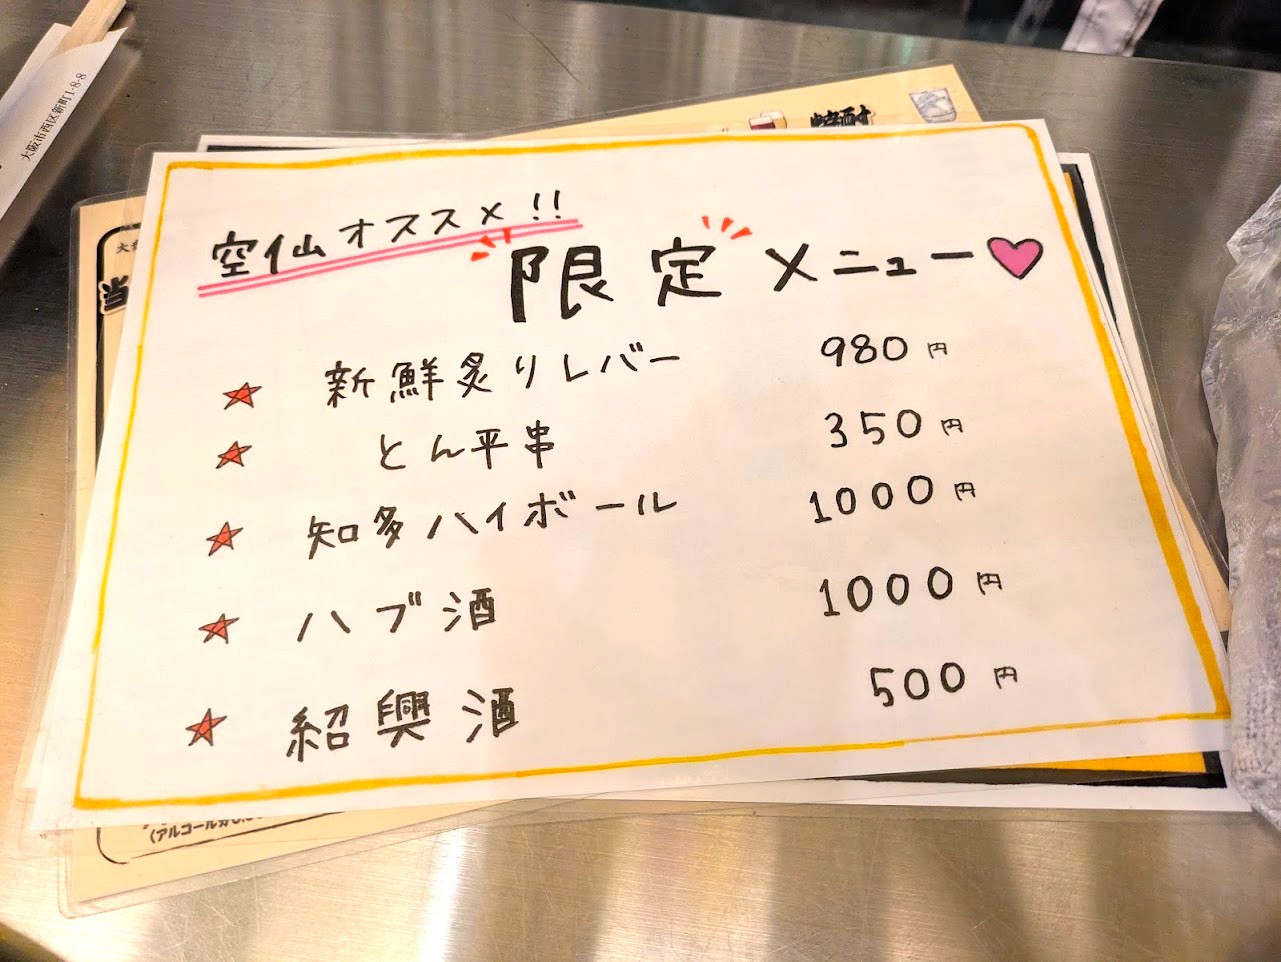 大阪市西区新町1-8-8
焼酎
空仙オススメ!!
限定メニュー
新鮮炙りレバー 980円
とん平串 350円
知多ハイボール 1000円
ハブ酒 1000円
紹興酒 500円
当
(アルコール